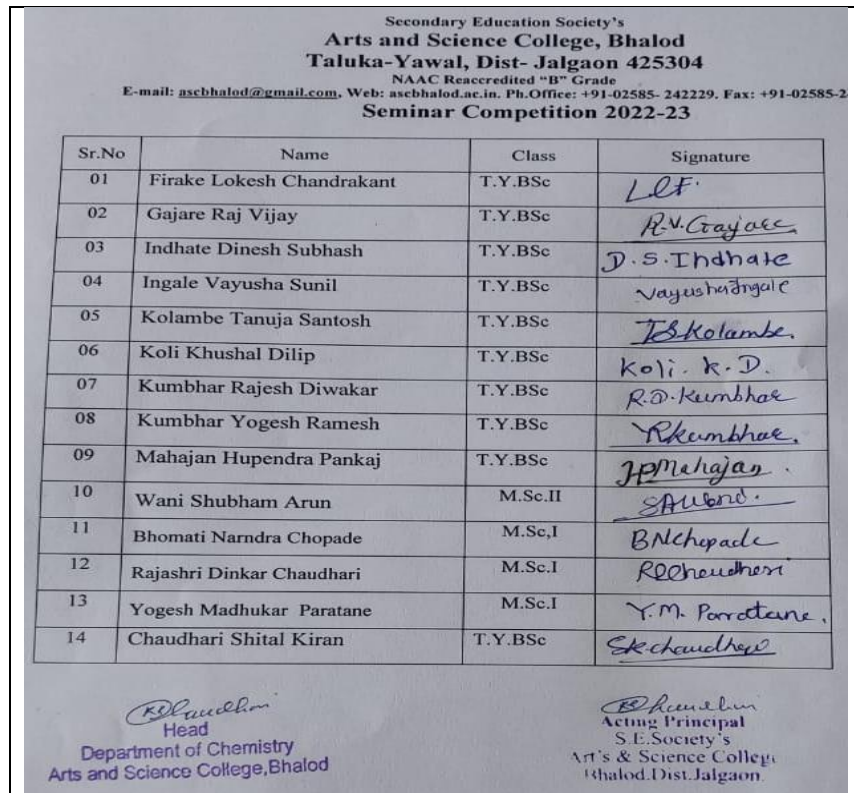 Secondary Education Society's
Arts and Science College, Bhalod
Taluka-Yawal, Dist- Jalgaon 425304
NAAC Reaccredited “B” Grade
E-mail: ascbhalod@gmail.com, Web: ascbhalod.ac.in. Ph.Office: +91-02585- 242229. Fax: +91-02585-2
Seminar Competition 2022-23
Sr.No Name Class Signature
01 Firake Lokesh Chandrakant T.Y.BSc
02 Gajare Raj Vijay T.Y.BSc R.V.Gajare
03 Indhate Dinesh Subhash T.Y.BSc D.S.Indhate
04 Ingale Vayusha Sunil T.Y.BSc Vayusha Ingale
05 Kolambe Tanuja Santosh T.Y.BSc TSKolambe.
06 Koli Khushal Dilip T.Y.BSc Koli. K.D.
07 Kumbhar Rajesh Diwakar T.Y.BSc R.D.Kumbhar
08 Kumbhar Yogesh Ramesh T.Y.BSc YRkumbhar.
09 Mahajan Hupendra Pankaj T.Y.BSc HPMahajan.
10 Wani Shubham Arun M.Sc.II
11 Bhomati Narndra Chopade M.Sc,I BNChopade
12 Rajashri Dinkar Chaudhari M.Sc.I RDChaudhari
13 Yogesh Madhukar Paratane M.Sc.I Y.M. Parratane.
14 Chaudhari Shital Kiran T.Y.BSc Sk.chaudhari
Head
Department of Chemistry
Arts and Science College,Bhalod
Acting Principal
S.E.Society's
Art's & Science College
Bhalod.Dist.Jalgaon.